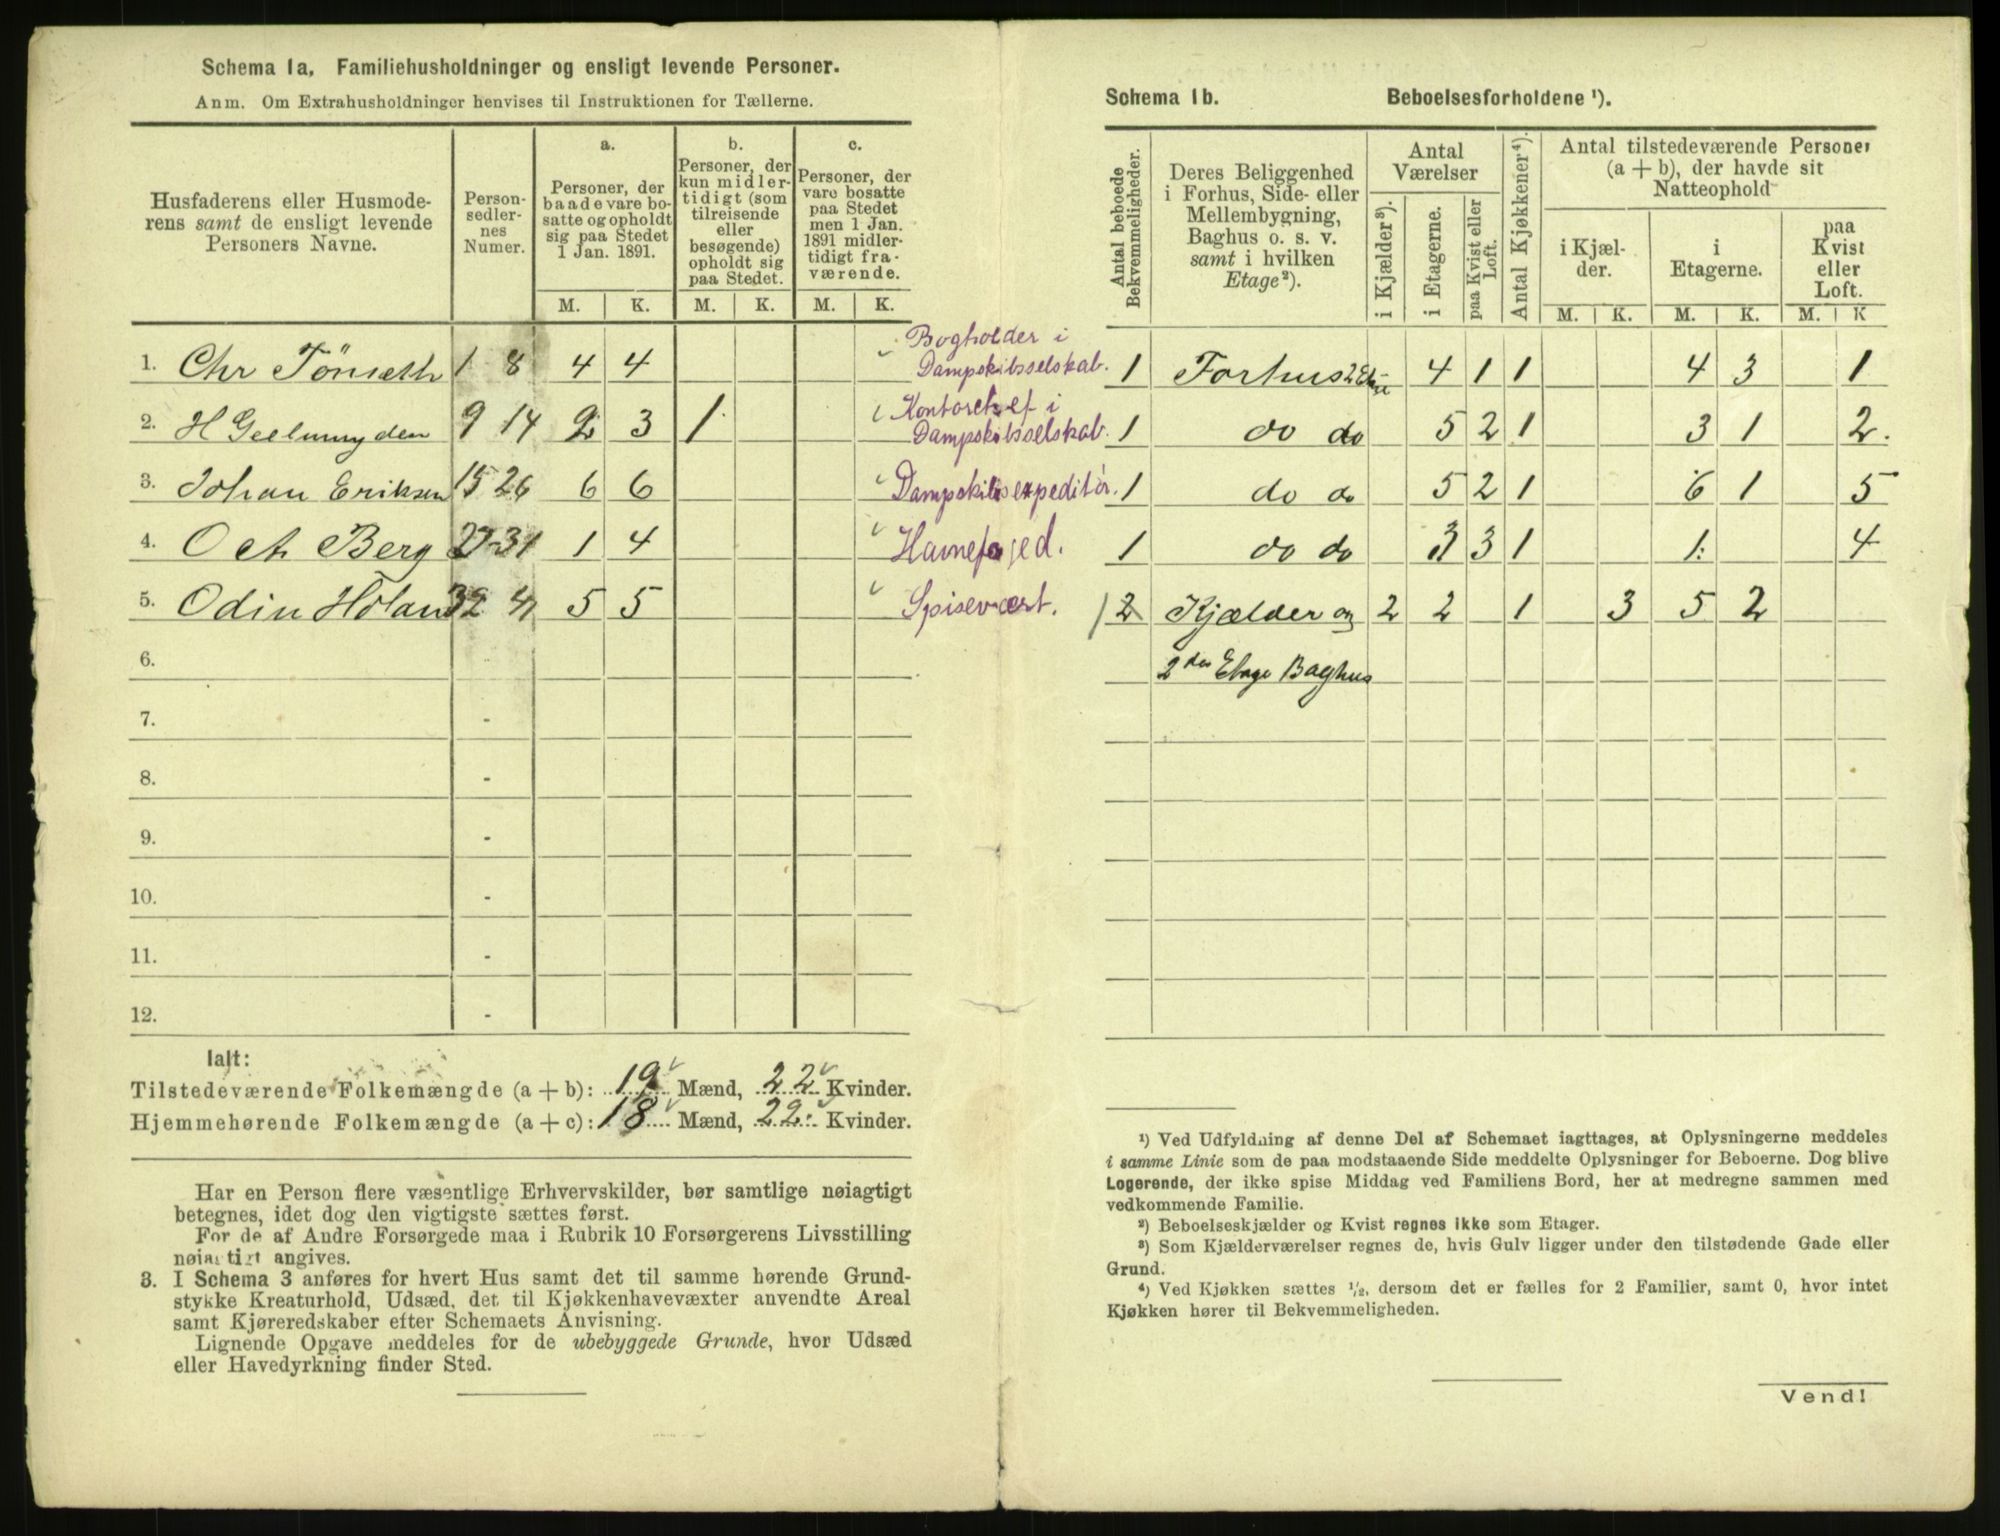 Schema 1a, Familiehusholdninger og ensligt levende Personer.
Anm. Om Extrahusholdninger henvises til Instruktionen for Tællerne.
Husfaderens eller Husmode-
rens samt de ensligt levende
Personers Navne.
Person-
sedler-
nes
Numer.
a.
Personer, der
baade vare bo-
satte og opholdt
sig paa Stedet
1 Jan. 1891.
b.
Personer, der
kun midler-
tidigt (som
tilreisende
eller
besøgende)
opholdt sig
paa Stedet.
c.
Personer, der
vare bosatte
paa Stedet
men 1 Jan.
1891 midler-
tidigt fra-
værende.
M. K. M. K. M. K.
1. Chr Tönseth 1 8 4 4 Bogholder i Dampskibsselskab.
2. H Geelmuyden 9 14 2 3 1 Kontorchef i Dampskibsselskab.
3. Johan Eriksen 15 26 6 6 Dampskibsexpeditör.
4. Och Berg 27-31 1 4 Havnefoged.
5. Odin Hölan 32 41 5 5 Spisevært.
6.
7. -
8. -
9. -
10. -
11. -
12. -
Ialt:
Tilstedeværende Folkemængde (a + b): 19 Mænd, 22 Kvinder.
Hjemmehørende Folkemængde (a + c): 18 Mænd, 22 Kvinder.
Har en Person flere væsentlige Erhvervskilder, bør samtlige nøiagtigt
betegnes, idet dog den vigtigste sættes først.
For de af Andre Forsørgede maa i Rubrik 10 Forsørgerens Livsstilling
nøiagtigt angives.
3. I Schema 3 anføres for hvert Hus samt det til samme hørende Grund-
stykke Kreaturhold, Udsæd, det til Kjøkkenhavevæxter anvendte Areal
samt Kjøreredskaber efter Schemaets Anvisning.
Lignende Opgave meddeles for de ubebyggede Grunde, hvor Udsæd
eller Havedyrkning finder Sted.
Schema 1b. Beboelsesforholdene ¹).
Antal beboede
Bekvemmeligheder.
Deres Beliggenhed
i Forhus, Side- eller
Mellembygning,
Baghus o. s. v.
samt i hvilken
Etage²).
Antal
Værelser
i Kjælder³).
i Etagerne.
paa Kvist eller
Loft.
Antal Kjøkkener⁴).
Antal tilstedeværende Personer
(a + b), der havde sit
Natteophold
i Kjæl-
der.
i
Etagerne.
paa
Kvist
eller
Loft.
M. K. M. K. M. K
1 Forhus 2 Etage 4 1 1 4 3 1
1 do do 5 2 1 3 1 2.
1 do do 5 2 1 6 1 5
1 do do 3 3 1 1 4
2 Kjælder og 2 2 1 3 5 2
2den Etage Baghus
¹) Ved Udfyldning af denne Del af Schemaet iagttages, at Oplysningerne meddeles
i samme Linie som de paa modstaaende Side meddelte Oplysninger for Beboerne. Dog blive
Logerende, der ikke spise Middag ved Familiens Bord, her at medregne sammen med
vedkommende Familie.
²) Beboelseskjælder og Kvist regnes ikke som Etager.
³) Som Kjælderværelser regnes de, hvis Gulv ligger under den tilstødende Gade eller
Grund.
⁴) Ved Kjøkken sættes ½, dersom det er fælles for 2 Familier, samt 0, hvor intet
Kjøkken hører til Bekvemmeligheden.
Vend!